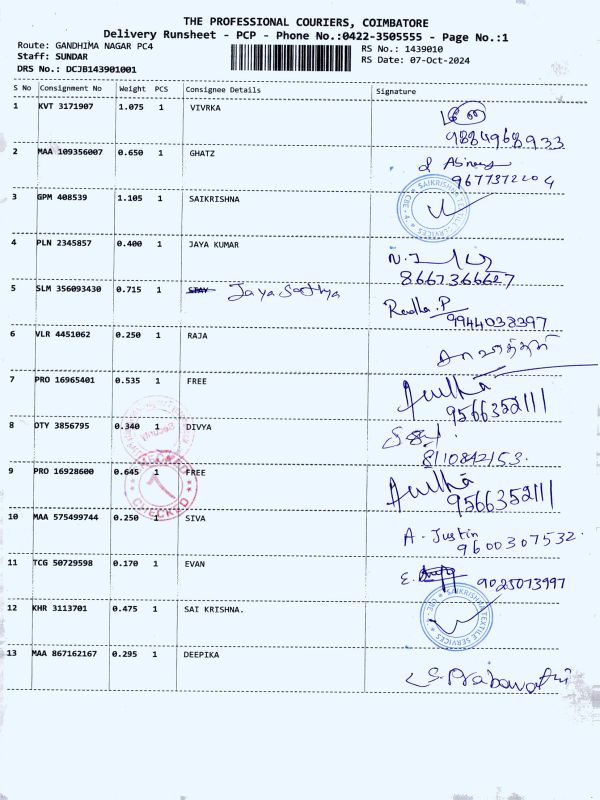 THE PROFESSIONAL COURIERS, COIMBATORE
Delivery Runsheet - PCP - Phone No.:0422-3505555 - Page No.:1
Route: GANDHIMA NAGAR PC4
RS No.: 1439010
Staff: SUNDAR
RS Date: 07-Oct-2024
DRS No.: DCJB143901001
S No Consignment No Weight PCS Consignee Details Signature
1 KVT 3171907 1.075 1 VIVRKA
9884968933
2 MAA 109356007 0.650 1 GHATZ
9677372204
3 GPM 408539 1.105 1 SAIKRISHNA
SAIKRISHNA TEXTILE SERVICES CBE - 4
4 PLN 2345857 0.400 1 JAYA KUMAR
8667366627
5 SLM 356093430 0.715 1 STAY Jaya Sathya
Radha.P
9944038397
6 VLR 4451062 0.250 1 RAJA
7 PRO 16965401 0.535 1 FREE
9566352111
8 OTY 3856795 0.340 1 DIVYA
8110842153.
9 PRO 16928600 0.645 1 FREE
CHECKED
9566352111
10 MAA 575499744 0.250 1 SIVA
A. Justin
9600307532.
11 TCG 50729598 0.170 1 EVAN
E. 9025073997
12 KHR 3113701 0.475 1 SAI KRISHNA.
SAIKRISHNA TEXTILE SERVICES CBE
13 MAA 867162167 0.295 1 DEEPIKA
S. Prabavathi